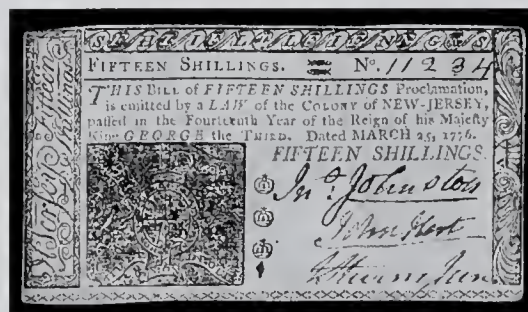 FIFTEEN SHILLINGS. No. 11234
THIS Bill of FIFTEEN SHILLINGS Proclamation,
is emitted by a LAW of the COLONY of NEW-JERSEY,
passed in the Fourteenth Year of the Reign of his Majesty
King GEORGE the THIRD. Dated MARCH 25, 1776.
FIFTEEN SHILLINGS.
Jno. Johnston
John Hart
Jun
N. Jersey Fifteen
Shillings